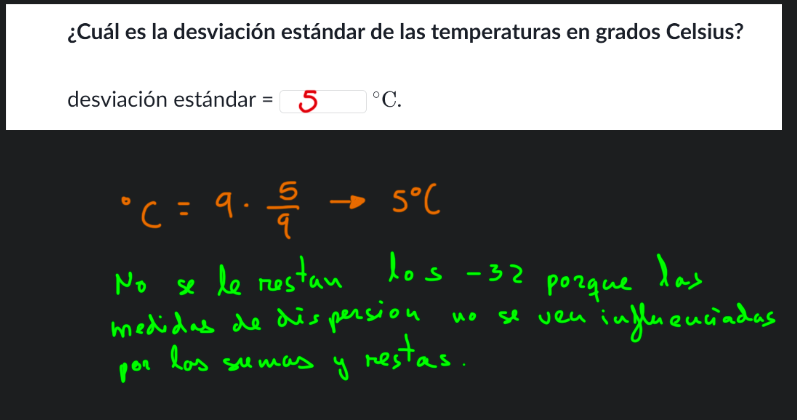 ¿Cuál es la desviación estándar de las temperaturas en grados Celsius?
desviación estándar = 5 °C.
°C = 9 · 5/9 → 5°C
No se le restan los -32 porque las
medidas de dispersion no se ven influenciadas
por las sumas y restas.